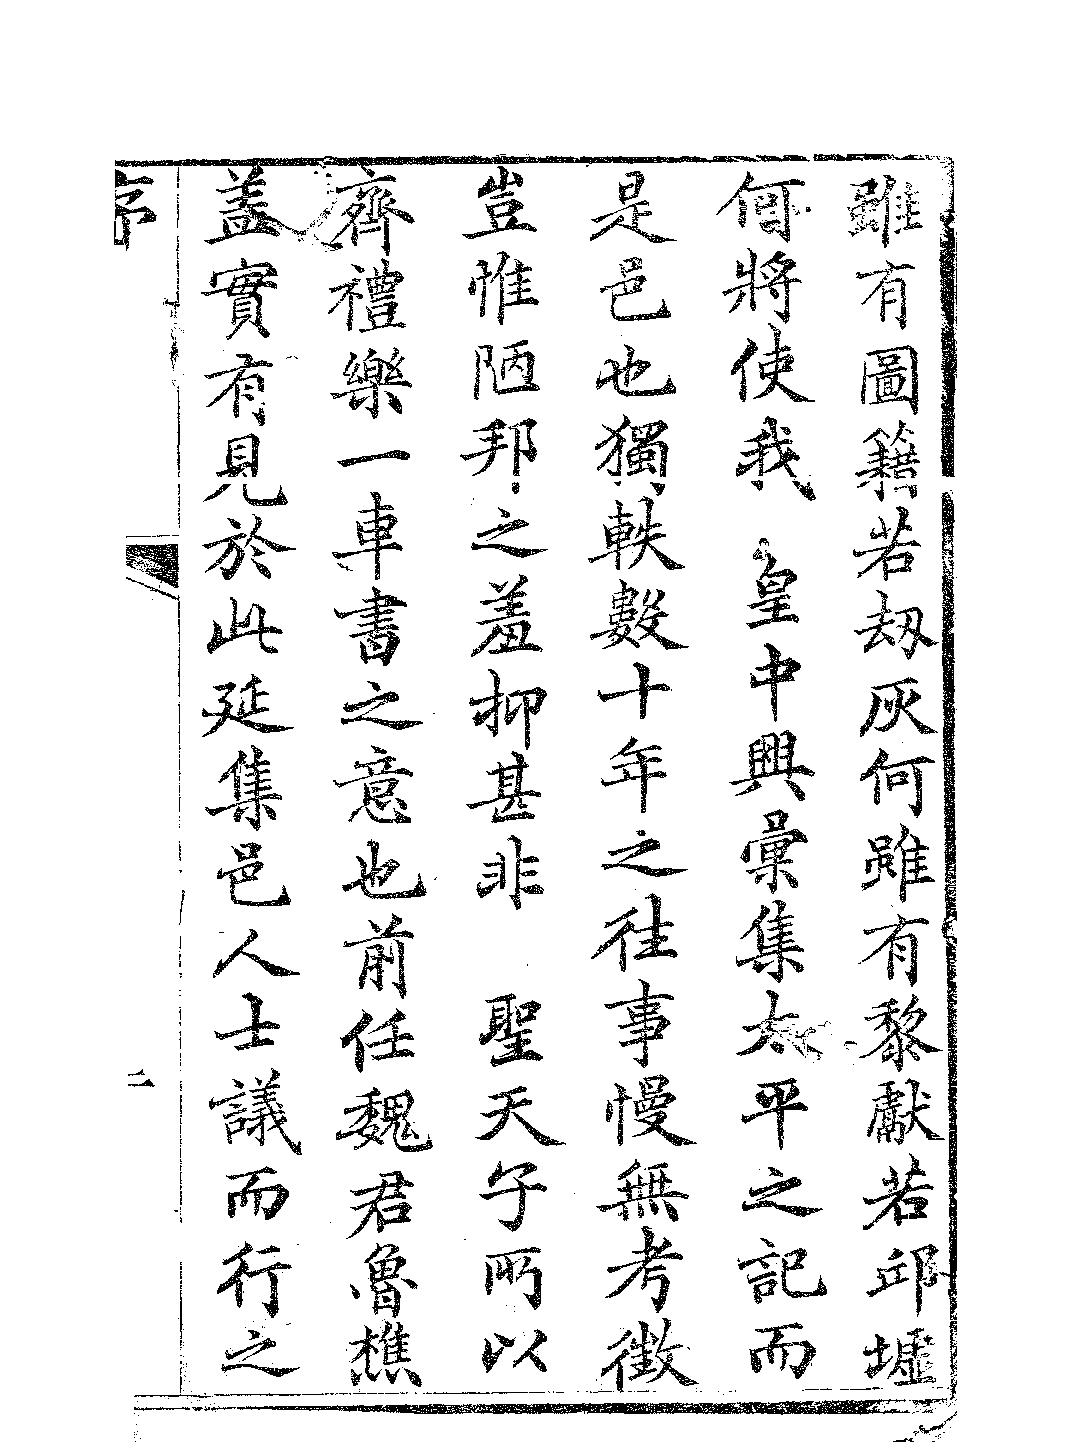 雖有圖籍若刼灰何雖有黎獻若邱墟
何將使我　皇中興彙集太平之記而
是邑也獨軼數十年之徃事慢無考徵
豈惟陋邦之羞抑甚非　聖天子所以
齊禮樂一車書之意也前任魏君魯樵
葢實有見於此延集邑人士議而行之
序
二